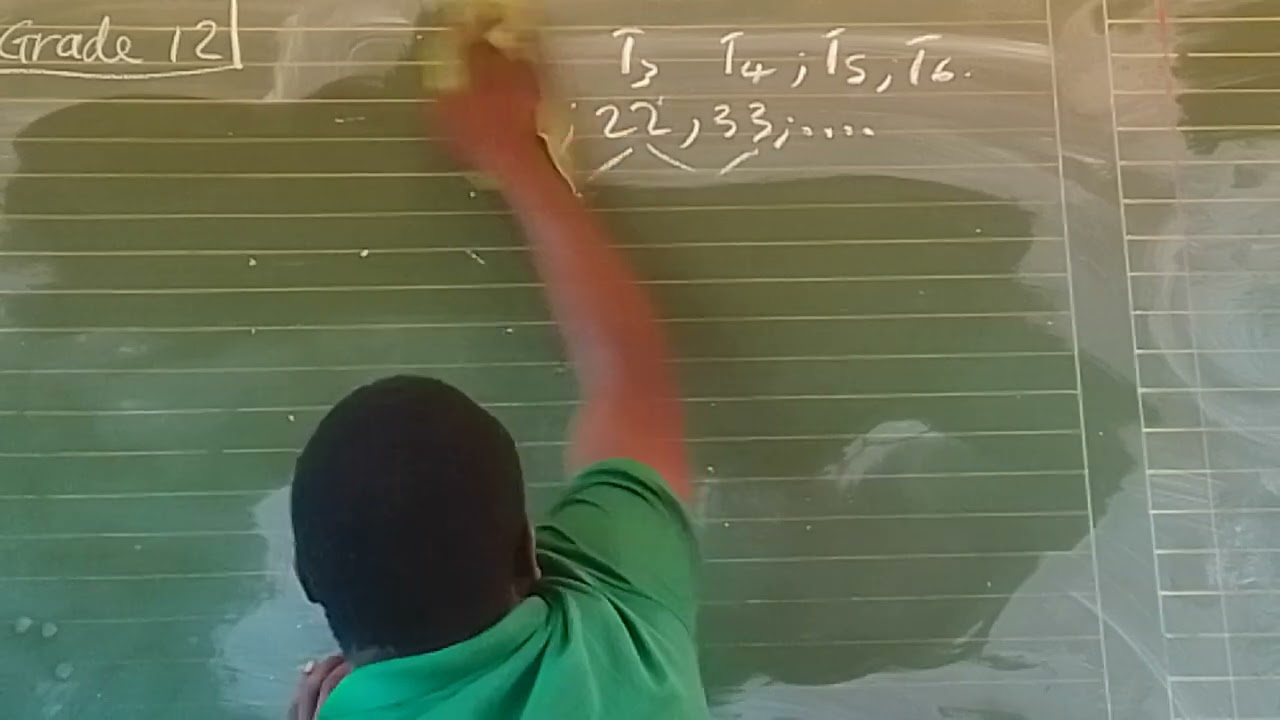 Grade 12
T3 T4 ; T5 , T6 .
; 22 , 33 ; ....